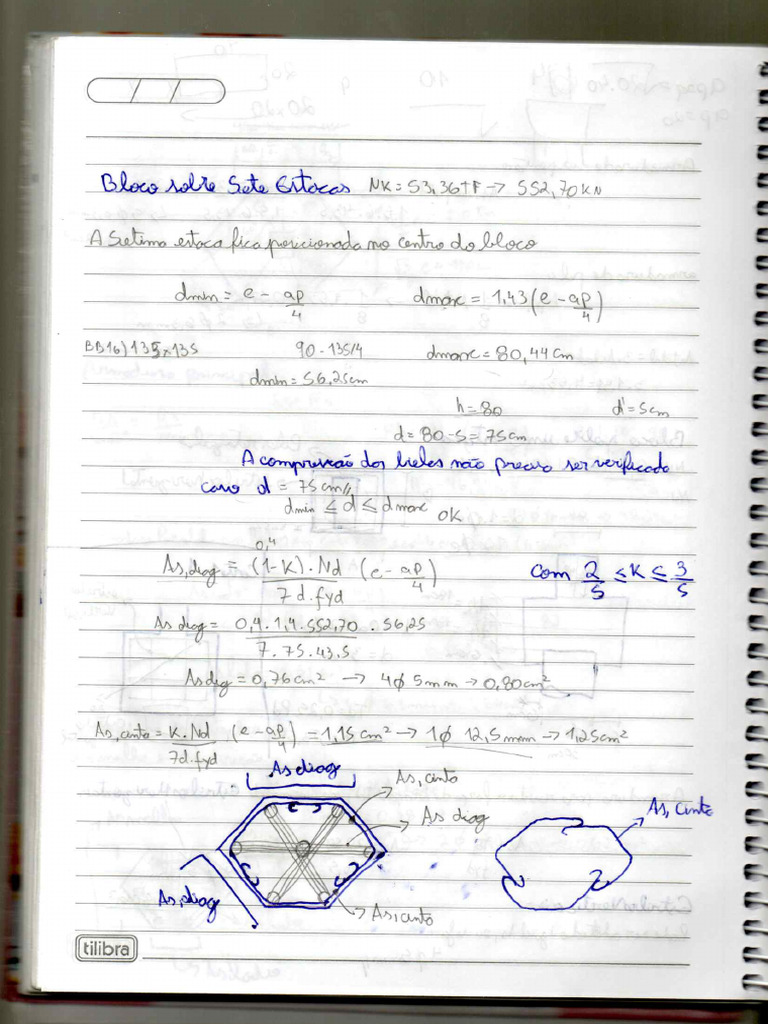 Bloco sobre Sete Estacas NK = 53,36TF → 552,70KN
A Setima estaca fica posicionada no centro do bloco
dmin = e - ap/4 dmax = 1,43(e - ap/4)
BB16) 135x135 90 - 135/4 dmax = 80,44cm
dmin = 56,25cm
h = 80 d' = 5cm
d = 80 - 5 = 75cm
A compressão das bielas não precisa ser verificado
caso d = 75cm//
dmin ≤ d ≤ dmax OK
0,4
As,diag = (1-K).Nd/7d.fyd (e - ap/4) Com 2/5 ≤ K ≤ 3/5
As diag = 0,4.1,4.552,70/7.75.43,5 . 56,25
As diag = 0,76cm² → 4ϕ 5mm → 0,80cm²
As, cinta = K.Nd/7d.fyd (e - ap/4) = 1,15cm² → 1ϕ 12,5mm → 1,25cm²
As diag
As, cinta
As diag
As, cinta
As, diag
As, cinta
tilibra